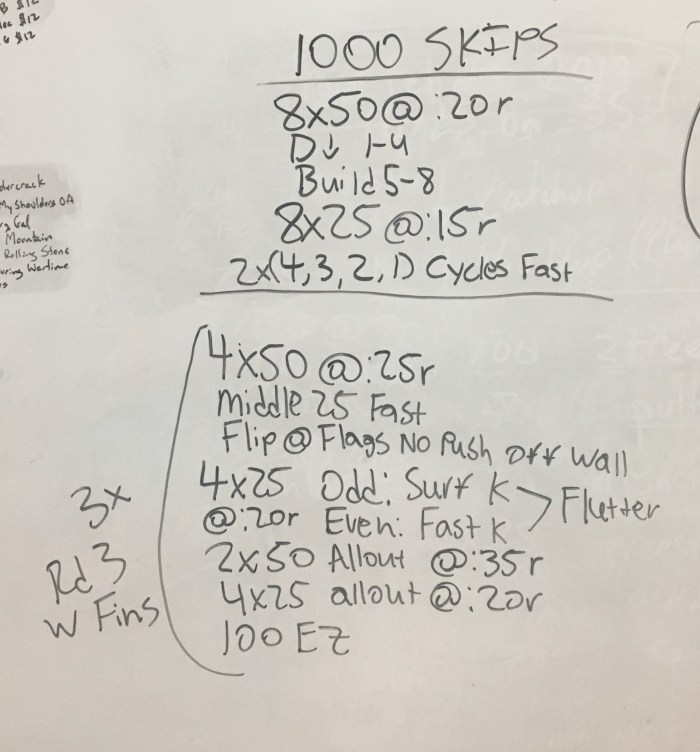 $12
$12
1000 SKIPS
8x50@:20r
D↓ 1-4
Build 5-8
8x25@:15r
2x(4,3,2,1) Cycles Fast
My Shoulders OA
Gal
Mountain
Rolling Stone
Wartime
4x50@:25r
Middle 25 Fast
Flip@Flags No Push off Wall
4x25 Odd: Surf K
@:20r Even: Fast K > Flutter
2x50 Allout @:35r
4x25 allout@:20r
100 EZ
3x
Rd 3
w Fins